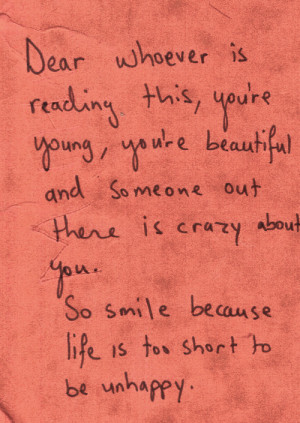 Dear whoever is
reading this, you're
young, you're beautiful
and someone out
there is crazy about
you.
So smile because
life is too short to
be unhappy.